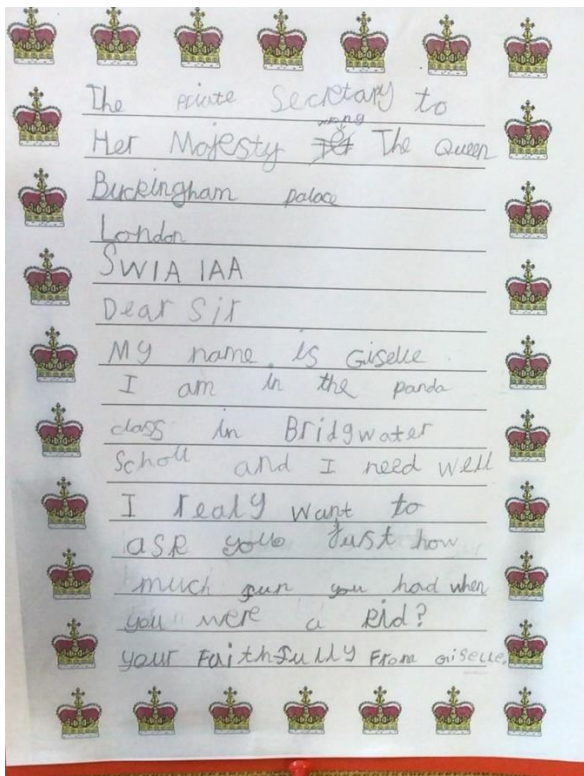 The Priate Secretary to
wrong
Her Majesty The Queen
Buckingham palace
London
SW1A 1AA
Dear Sir
My name is Giselle
I am in the panda
class in Bridgwater
Scholl and I need well
I realy want to
ask you Just how
much fun you had when
you were a kid?
your Faithfully From Giselle